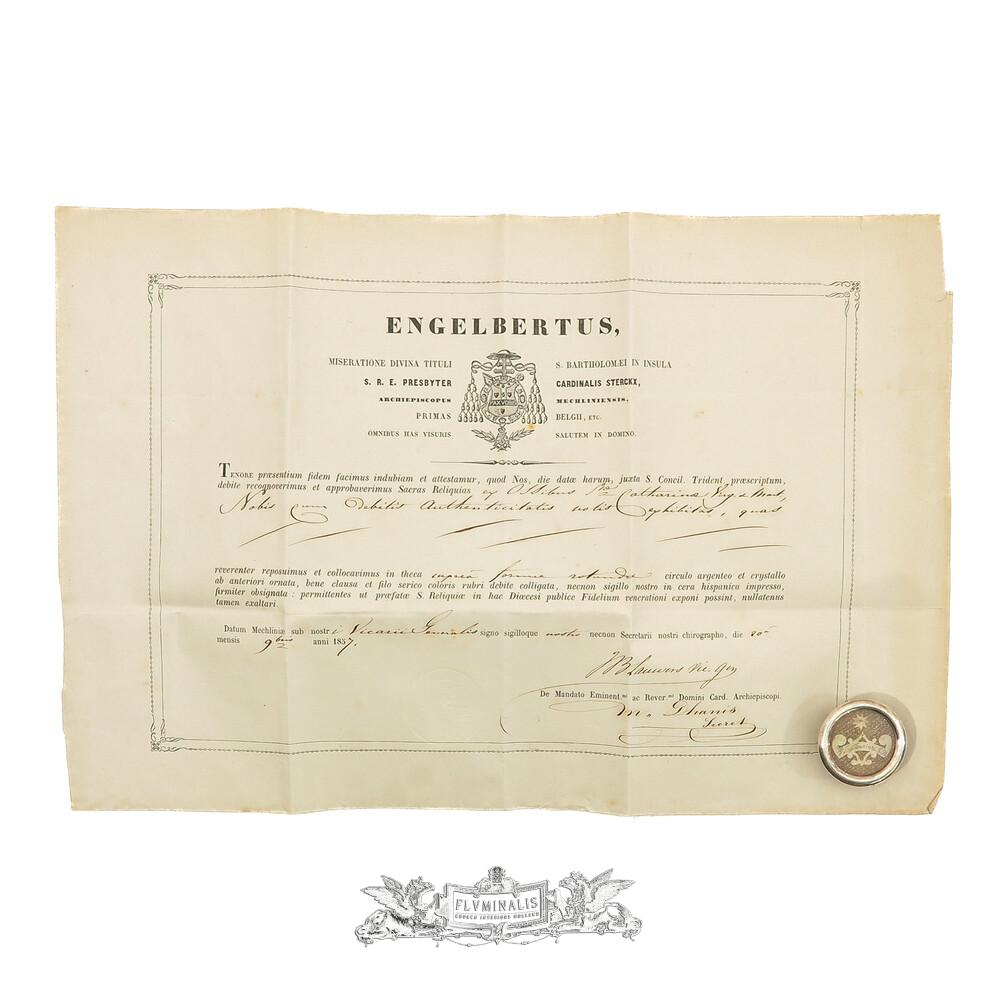 ENGELBERTUS,
MISERATIONE DIVINA TITULI S. BARTHOLOMÆI IN INSULA
S. R. E. PRESBYTER CARDINALIS STERCKX,
ARCHIEPISCOPUS MECHLINIENSIS,
PRIMAS BELGII, ETC.
OMNIBUS HAS VISURIS SALUTEM IN DOMINO.
TENORE præsentium fidem facimus indubiam et attestamur, quod Nos, die datæ harum, juxta S. Concil. Trident. præscriptum,
debite recognoverimus et approbaverimus Sacras Reliquias ex Ossibus Stæ Catharinæ Virg. & Mart,
Nobis cum debitis Authenticitatis notis exhibitas, quas
reverenter reposuimus et collocavimus in theca cuprea formæ rotundæ circulo argenteo et crystallo
ab anteriori ornata, bene clausa et filo serico coloris rubri debite colligata, necnon sigillo nostro in cera hispanica impresso,
firmiter obsignata : permittentes ut præfatæ S. Reliquiæ in hac Diœcesi publice Fidelium venerationi exponi possint, nullatenus
tamen exaltari.
Datum Mechliniæ sub nostri Vicarii Generalis signo sigilloque nostro necnon Secretarii nostri chirographo, die 20a
mensis 9bris anni 1857.
JB Lauwers Vic. Gen
De Mandato Eminent.mi ac Rever.mi Domini Card. Archiepiscopi.
Ghanis
Secret
FLVMINALIS
CHURCH INTERIORS HOLLAND